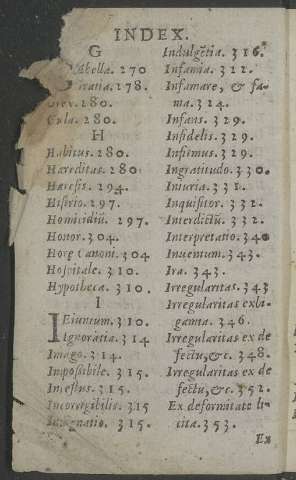 INDEX.
G
abella. 270
ratia. 278.
280.
Gula. 280.
H
Habitus. 280.
Hæreditas. 280.
Hæresis. 294.
Histrio. 297.
Homicidiũ. 297.
Honor. 304.
Horę Canoni. 304
Hospitale. 310.
Hypotheca. 310.
I
IEiunium. 310.
Ignoratia. 314
Imago. 314.
Impossibile. 315.
Incestus. 315.
Incorrigibilis. 315
Indignatio. 315.
Indulgẽtia. 316.
Infamia. 322.
Infamare, & fa-
ma. 324.
Infans. 329.
Infidelis. 329.
Infirmus. 329.
Ingratitudo. 330.
Iniuria. 331.
Inquisitor. 332.
Interdictũ. 332.
Interpretatio. 340
Inuentum. 343.
Ira. 343.
Irregularitas. 343
Irregularitas ex bi-
gamia. 346.
Irregularitas ex de
fectu, &c. 348.
Irregularitas ex de
fectu, &c. 352.
Ex deformitate li-
cita. 353.
Ex